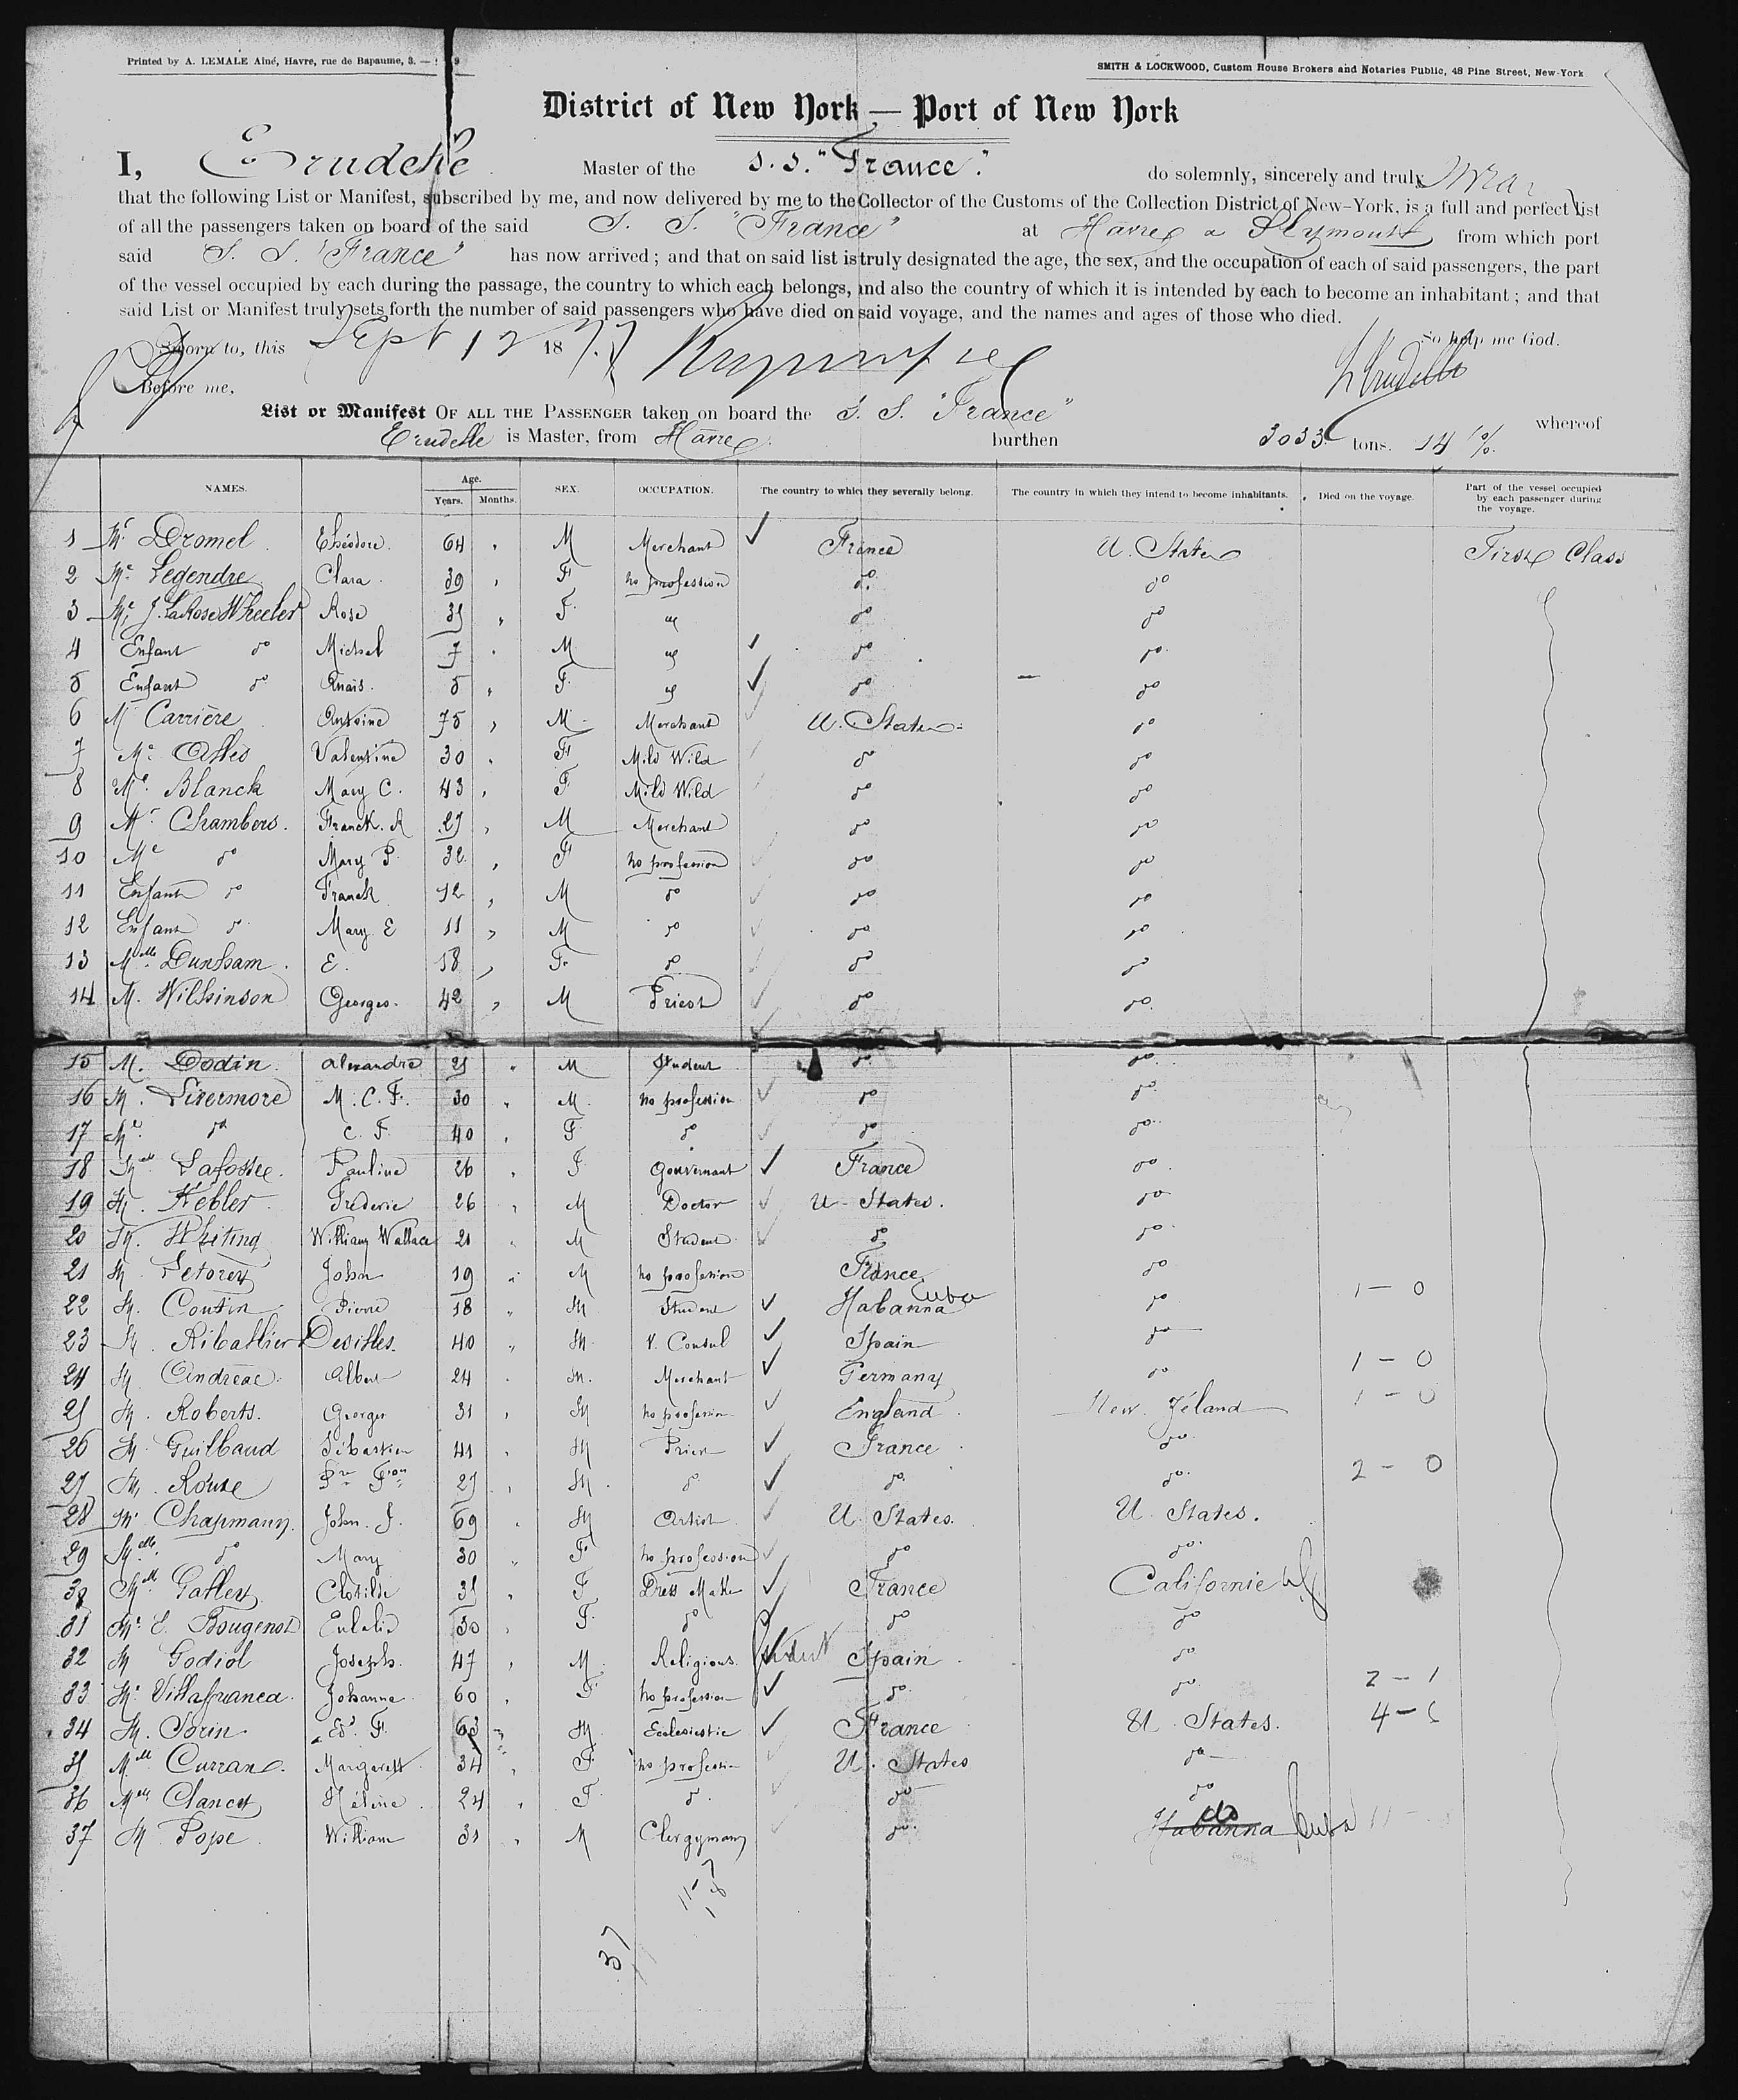 Printed by A. LEMALE Aîné, Havre, rue de Bapaume, 3. —
SMITH & LOCKWOOD, Custom House Brokers and Notaries Public, 48 Pine Street, New-York
District of New York — Port of New York
I, Trudelle Master of the S.S. "France". do solemnly, sincerely and truly swear
that the following List or Manifest, subscribed by me, and now delivered by me to the Collector of the Customs of the Collection District of New-York, is a full and perfect list
of all the passengers taken on board of the said S. S. "France" at Havre & Plymouth from which port
said S. S. "France" has now arrived ; and that on said list is truly designated the age, the sex, and the occupation of each of said passengers, the part
of the vessel occupied by each during the passage, the country to which each belongs, and also the country of which it is intended by each to become an inhabitant ; and that
said List or Manifest truly sets forth the number of said passengers who have died on said voyage, and the names and ages of those who died.
So help me God.
Sworn to, this Sept 12 1877
Before me, Trudelle
List or Manifest OF ALL THE PASSENGER taken on board the S. S. "France" whereof
Trudelle is Master, from Havre burthen 3033 tons. 14
NAMES. Age. Years. Months. SEX. OCCUPATION. The country to which they severally belong. The country in which they intend to become inhabitants. Died on the voyage. Part of the vessel occupied by each passenger during the voyage.
1 Mr Dromel Théodore 64 " M Merchant France U. States First Class
2 Me Legendre Clara 39 " F no profession do do
3 Me J. LaRose Wheeler Rose 35 " F. do do
4 Enfant do Michel 7 " M do do
5 Enfant do Anaïs 5 " F. do do
6 M Carrière Antoine 75 " M Merchant U. States do
7 Me Valentine 30 " F do do
8 Me Blanck Mary C. 43 " F do do
9 Mr Chambers. Franck. R 25 " M Merchant do do
10 Me do Mary P. 32 " F no profession do do
11 Enfant do Franck 12 " M do do do
12 Enfant do Mary E 11 " M do do do
13 Melle Dunham E. 18 " F. do do do
14 M. Wilkinson Georges 42 " M Priest do do
15 M. Dodin Alexandre 25 " M Student do do
16 M. Livermore M. C. F. 30 " M. no profession do do
17 Me do C. F. 40 " F do do do
18 Melle Lafosse Pauline 26 " F Gouvernant France do
19 M. Kebler Frederic 26 " M Doctor U. States. do
20 M. Whiting William Wallace 21 " M Student do do
21 M. John 19 " M no profession France do
22 M. Coutin Pierre 18 " M Student Habanna Cuba do 1 — 0
23 M. Riballier Desisles. 40 " M. V. Consul Spain do
24 M. Andreae Albert 24 " M. Merchant Germany do 1 — 0
25 M. Roberts. Georges 31 " M no profession England New. Zéland 1 — 0
26 M. Guilbaud Sébastien 41 " M Priest France do
27 M. Rouse 25 " M. do do do 2 — 0
28 Mr Chapmann. John. J. 69 " M Artist U. States. U. States.
29 Melle do Mary 30 " F no profession do do
30 Clotilde 35 " F Dress Maker France Californie
31 Me E. Bougenot Eulalie 30 " F. do do do
32 M Godiol Joseph. 47 " M. Religious. Spain do
33 Me Villafranca. Johanna 60 " F no profession do. do. 2 — 1
34 M. Sorin Ed. F. 63 " M. Ecclesiestic France U. States. 4 —
35 Mell Curran. Margarett 34 " F. no profession U. States do
36 Mell Clancy Hélène 24 " F. do. do do
37 M. Pope William 31 " M Clergymann do. Habanna do Cuba
37